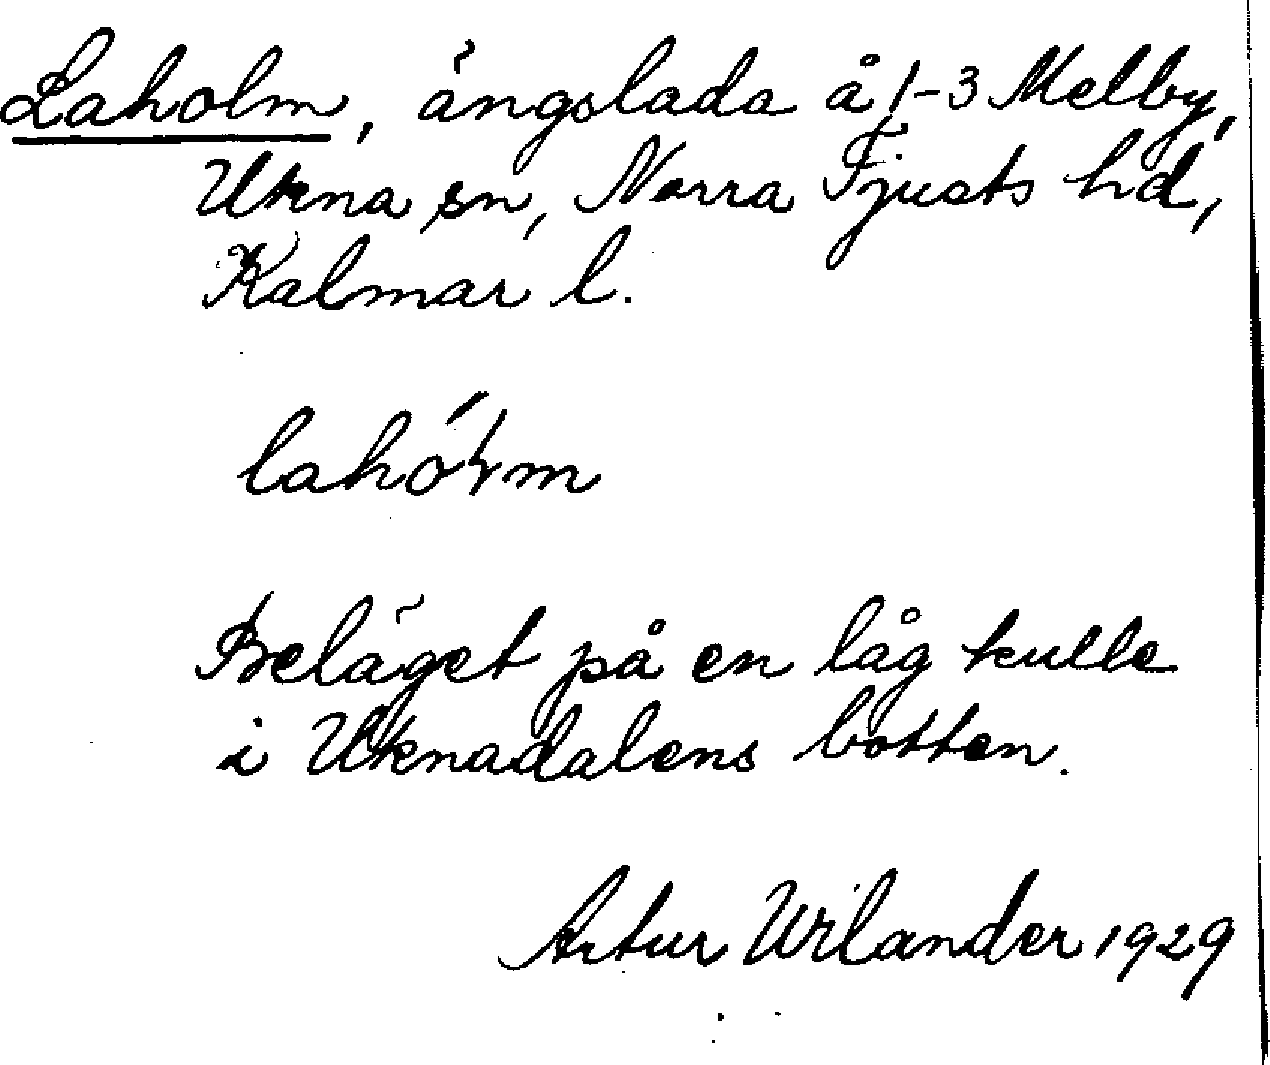 Laholm, ängslada å 1-3 Melby,
Ukna sn, Norra Tjusts hd,
Kalmar l.
Beläget på en låg kulle
i Uknadalens botten.
Artur Wilander 1929